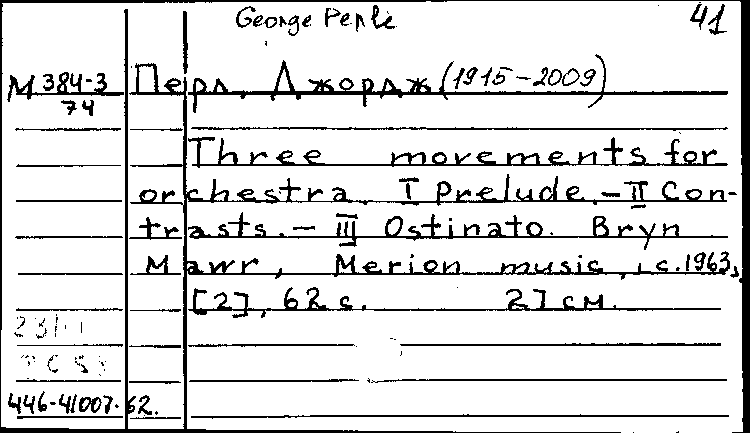 George Perle
41
М 384-3
74
Перл, Джордж (1915-2009)
Three movements for
orchestra. I Prelude. - II Con-
trasts. - III Ostinato. Bryn
Mawr, Merion music, c.1963,
[2], 62 с. 27 см.
446-41007-62.